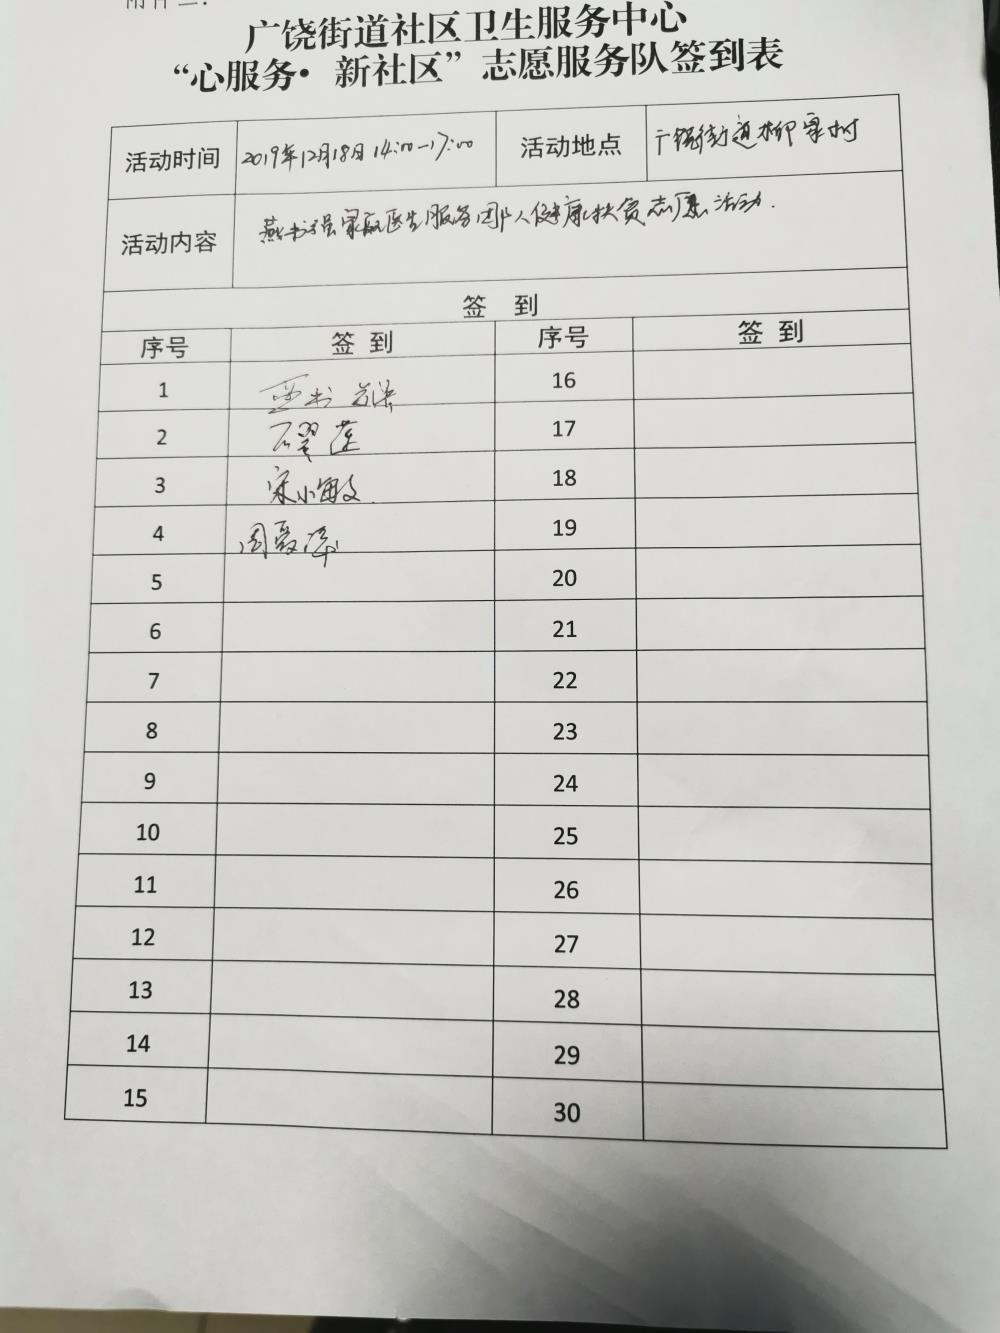 广饶街道社区卫生服务中心
“心服务·新社区”志愿服务队签到表
活动时间 2019年12月18日 14:00—17:00 活动地点 广饶街道柳寨村
活动内容 燕书强家庭医生服务团队健康扶贫志愿活动.
签 到
序号 签 到 序号 签 到
1 16
2 17
3 宋小敏 18
4 19
5 20
6 21
7 22
8 23
9 24
10 25
11 26
12 27
13 28
14 29
15 30